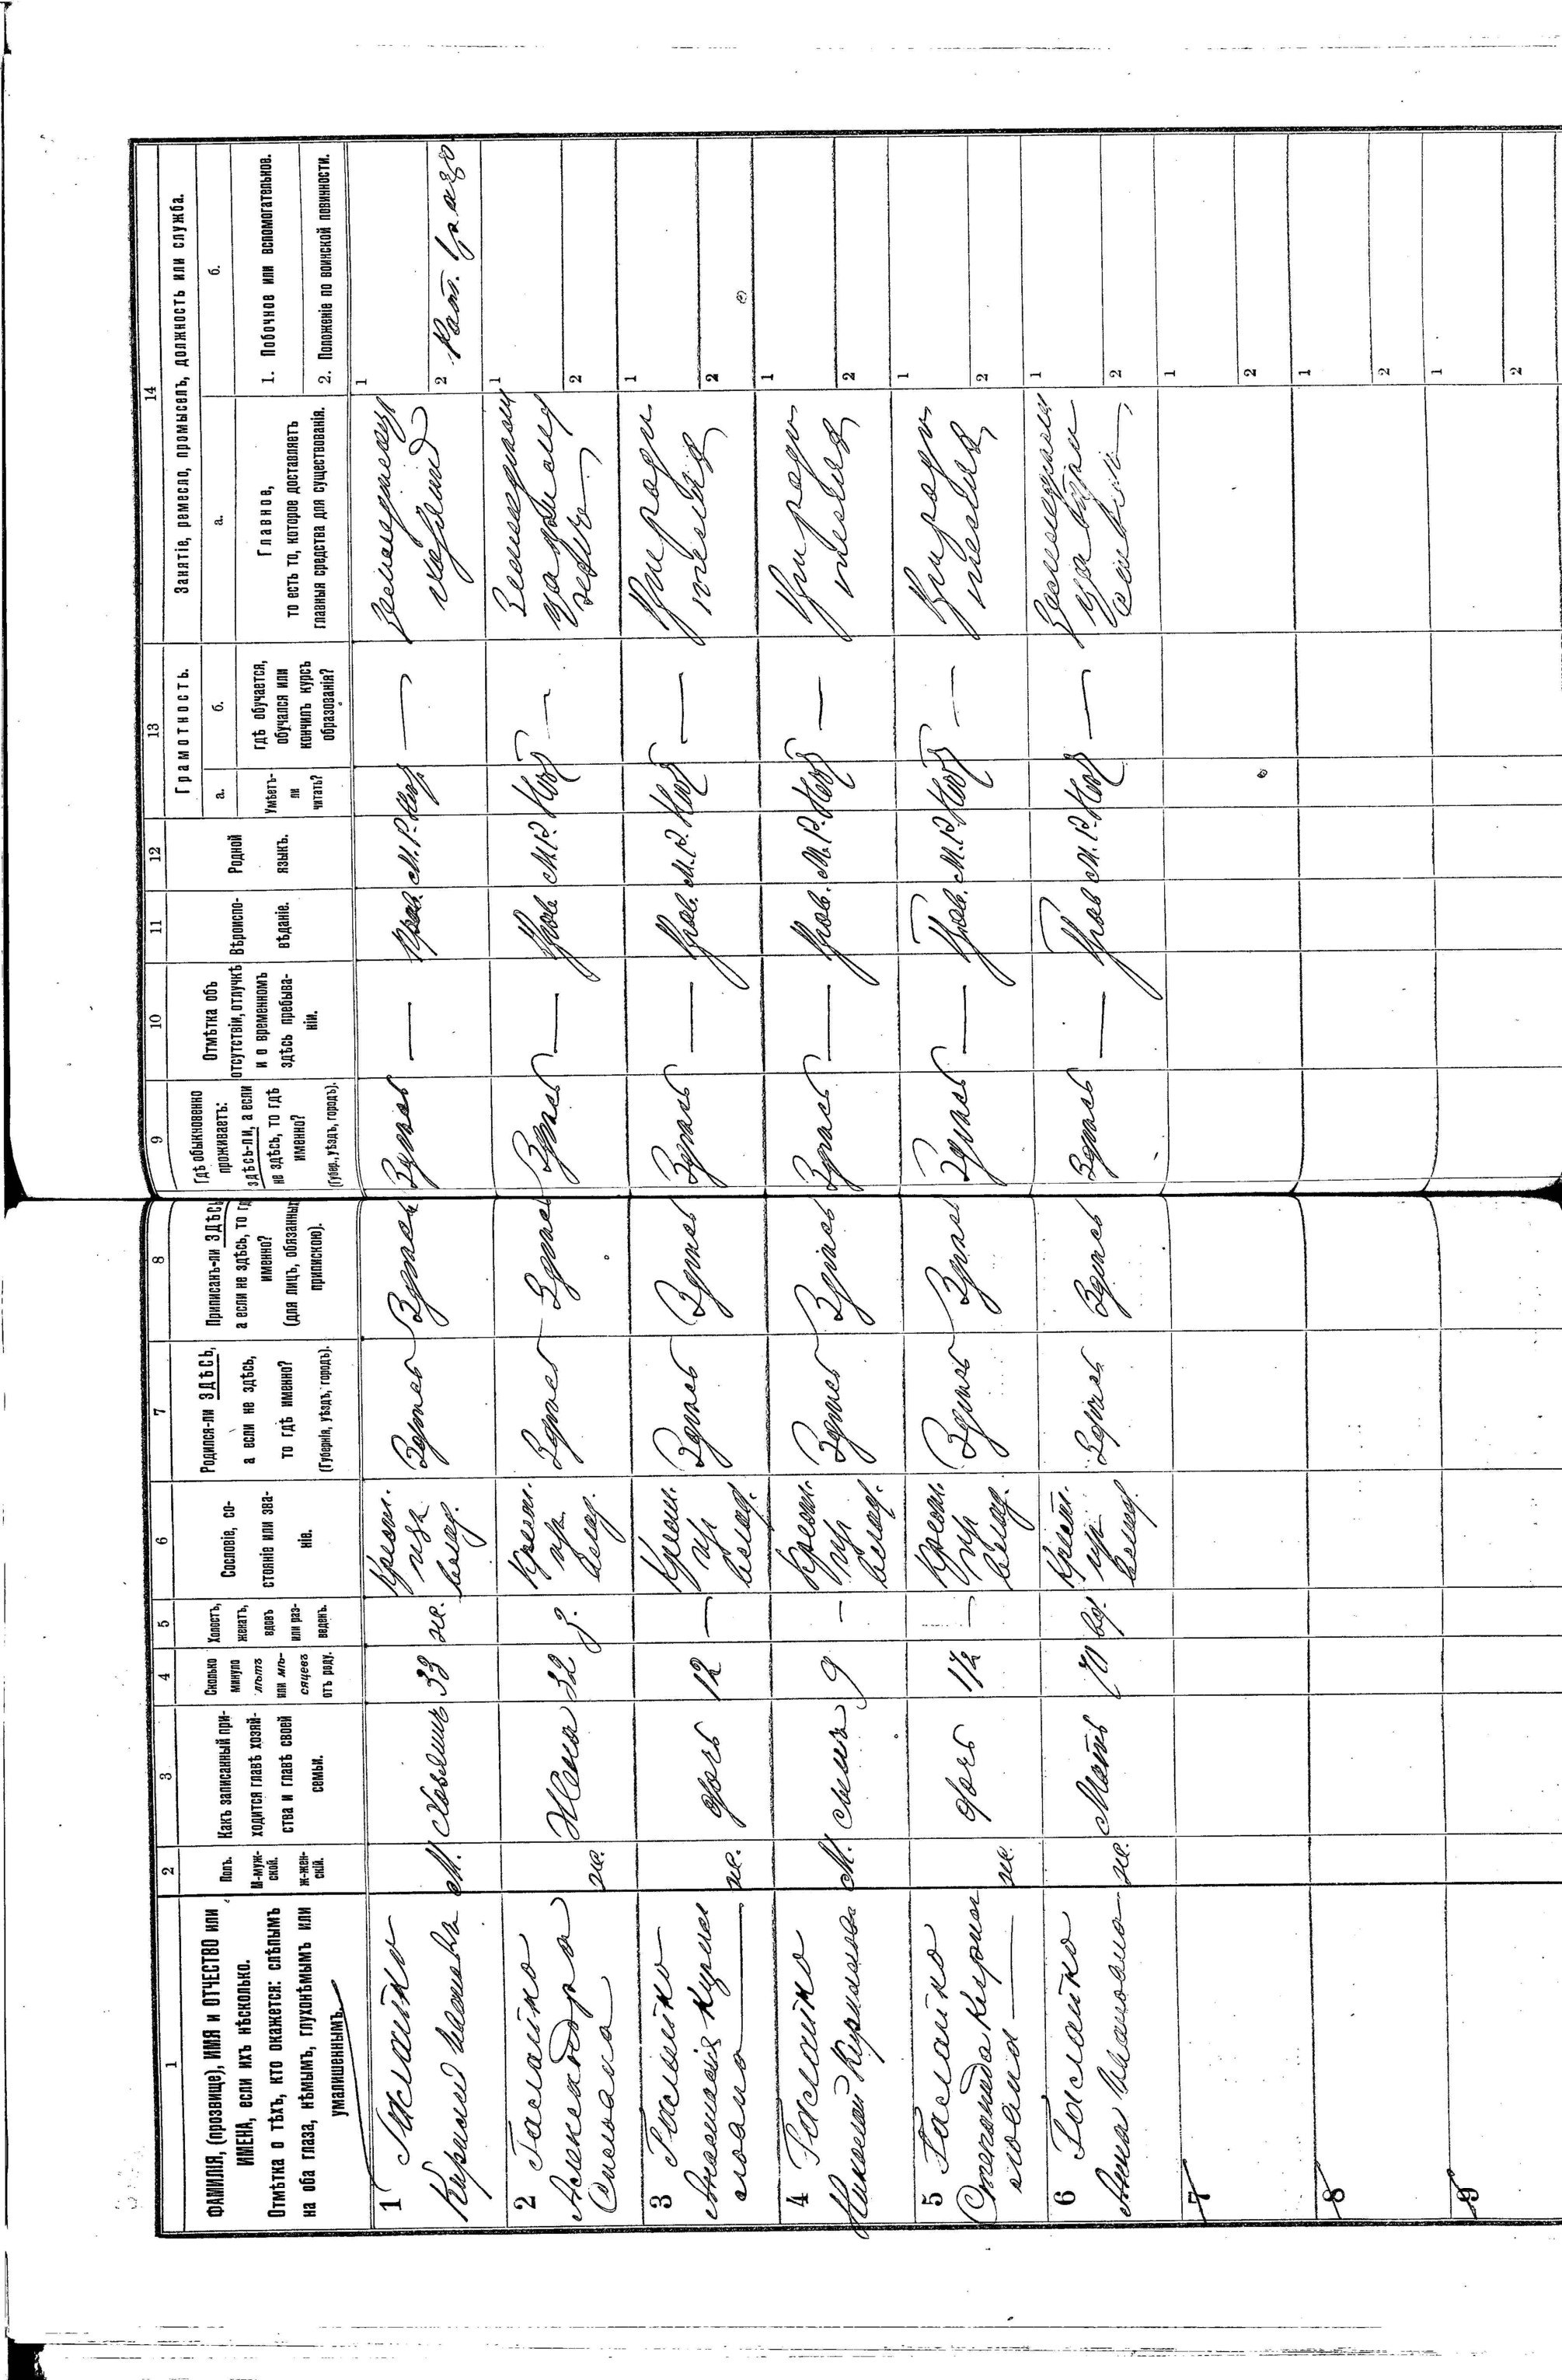 1
ФАМИЛІЯ, (прозвище), ИМЯ и ОТЧЕСТВО или
ИМЕНА, если ихъ нѣсколько.
Отмѣтка о тѣхъ, кто окажется: слѣпымъ
на оба глаза, нѣмымъ, глухонѣмымъ или
умалишеннымъ.
2
Полъ.
М-муж-
ской.
ж-жен-
скій.
3
Какъ записанный при-
ходится главѣ хозяй-
ства и главѣ своей
семьи.
4
Сколько
минуло
лѣтъ
или мѣ-
сяцевъ
отъ роду.
5
Холостъ,
женатъ,
вдовъ
или раз-
веденъ.
6
Сословіе, со-
стояніе или зва-
ніе.
7
Родился-ли ЗДѢСЬ,
а если не здѣсь,
то гдѣ именно?
(Губернія, уѣздъ, городъ).
8
Приписанъ-ли ЗДѢСЬ
а если не здѣсь, то гд
именно?
(для лицъ, обязанных
припискою).
9
Гдѣ обыкновенно
проживаетъ:
здѣсь-ли, а если
не здѣсь, то гдѣ
именно?
(Губер., уѣздъ, городъ).
10
Отмѣтка объ
отсутствіи, отлучкѣ
и о временномъ
здѣсь пребыва-
ніи.
11
Вѣроиспо-
вѣданіе.
12
Родной
языкъ.
13
Грамотность.
а.
Умѣетъ-
ли
читать?
б.
гдѣ обучается,
обучался или
кончилъ курсъ
образованія?
14
Занятіе, ремесло, промыселъ, должность или служба.
а.
Главное,
то есть то, которое доставляетъ
главныя средства для существованія.
б.
1. Побочное или вспомогательное.
2. Положеніе по воинской повинности.
1 Гаслайко
Кирилл Иванов
М. Хозяинъ 33 ж. Крест. из влад. Здѣсь Здѣсь Здѣсь — Прав. М.Р. Нѣтъ —
1
2 Рат.
2 Гаслайко
Александра
ж. Жена 32 з. Крест. из влад. Здѣсь Здѣсь Здѣсь — Прав М.Р. Нѣтъ —
1
2
3 Гаслайко
Анастасія Кирил
лова
ж. дочь 12 — Крест. из влад. Здѣсь Здѣсь Здѣсь — Прав. М.Р. Нѣтъ —
При роди
теляхъ
1
2
4 Гаслайко
Николай Кириллов
М. сынъ 9 — Крест. из влад. Здѣсь Здѣсь Здѣсь — Прав. М.Р. Нѣтъ —
При роди
теляхъ
1
2
5 Гаслайко
Степанида Кирил
лова
ж. дочь 1/2 — Крест. из влад. Здѣсь Здѣсь Здѣсь — Прав. М.Р. Нѣтъ —
При роди
теляхъ
1
2
6 Гаслайко
Анна Ивановна
ж. Мать 70 вд. Крест. из влад. Здѣсь Здѣсь Здѣсь — Прав М.Р. Нѣтъ —
1
2
7
1
2
8
1
2
9
1
2